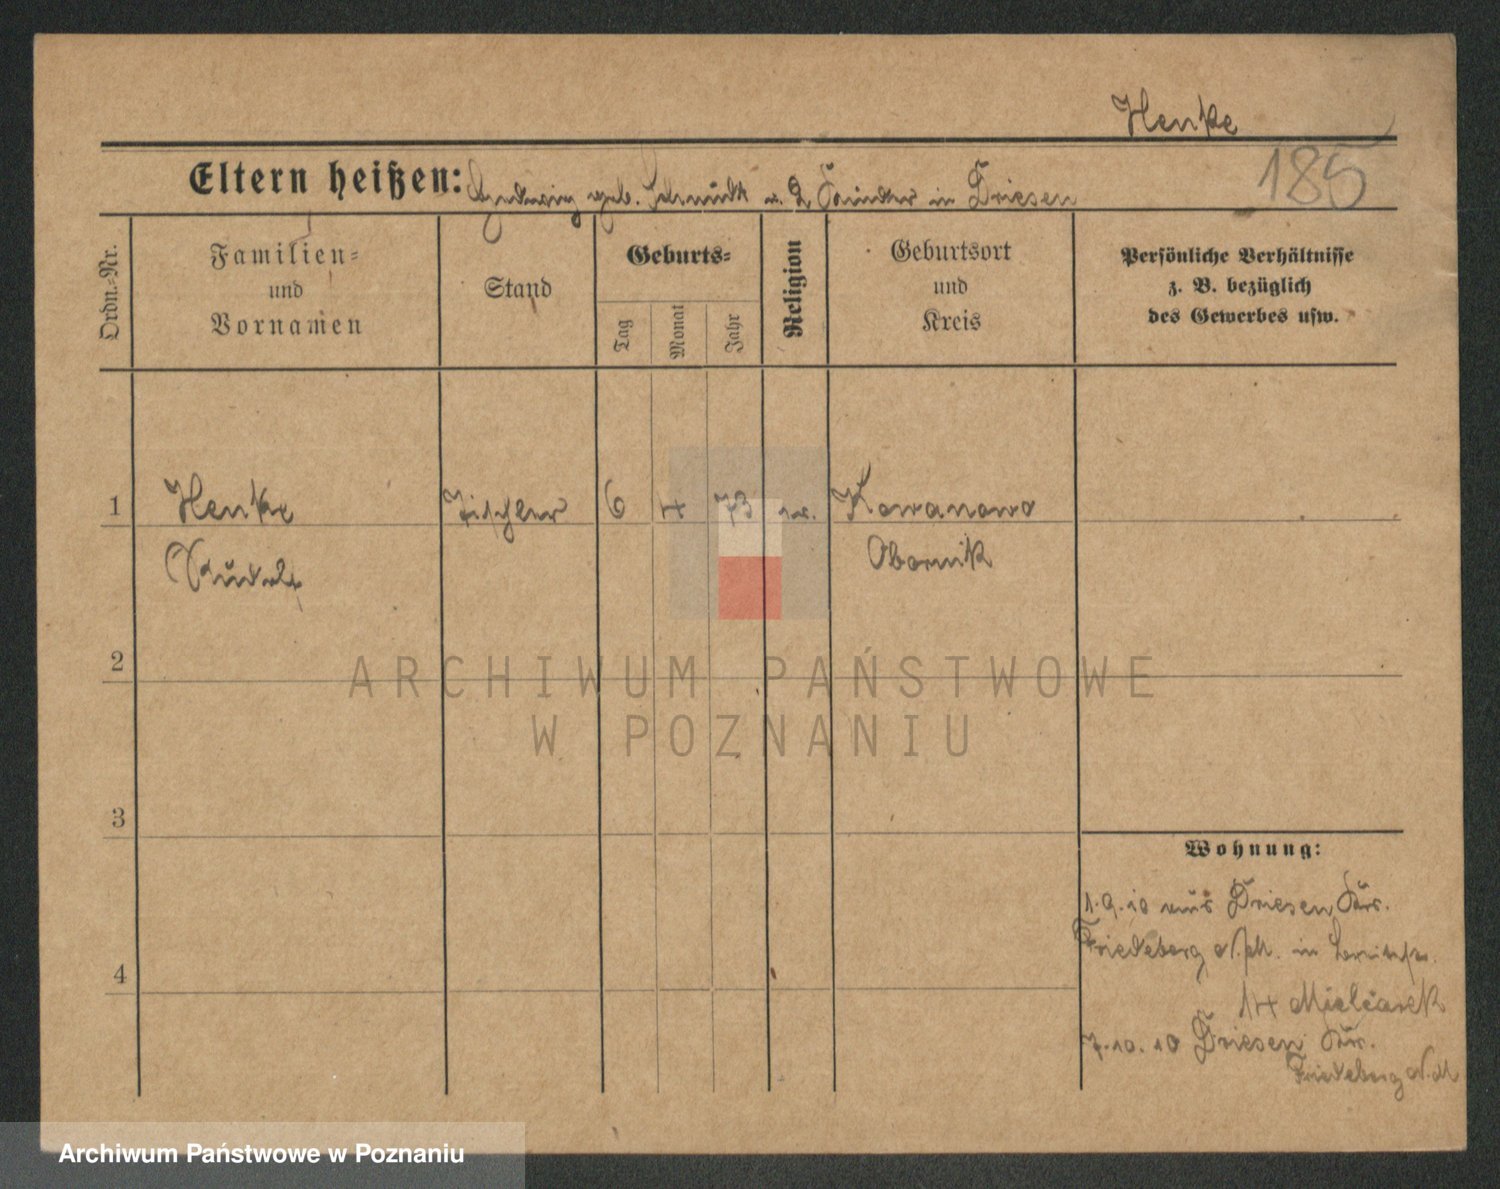 Henke
185
Eltern heißen: Hedwig geb. Schmidt u. 2 Kinder in Driesen
Ordn.-Nr.
Familien-
und
Vornamen
Stand
Geburts-
Tag
Monat
Jahr
Religion
Geburtsort
und
Kreis
Persönliche Verhältnisse
z. B. bezüglich
des Gewerbes usw.
1 Henke Tischler 6 4 73 ev. Kowanowo
Rudolf Obornik
2
3
4
Wohnung:
1.9.10 aus Driesen Krs.
Friedeberg N./M. in
14 Mielcarek
7.10.10 Driesen Krs.
Friedeberg N.M
ARCHIWUM PAŃSTWOWE
W POZNANIU
Archiwum Państwowe w Poznaniu